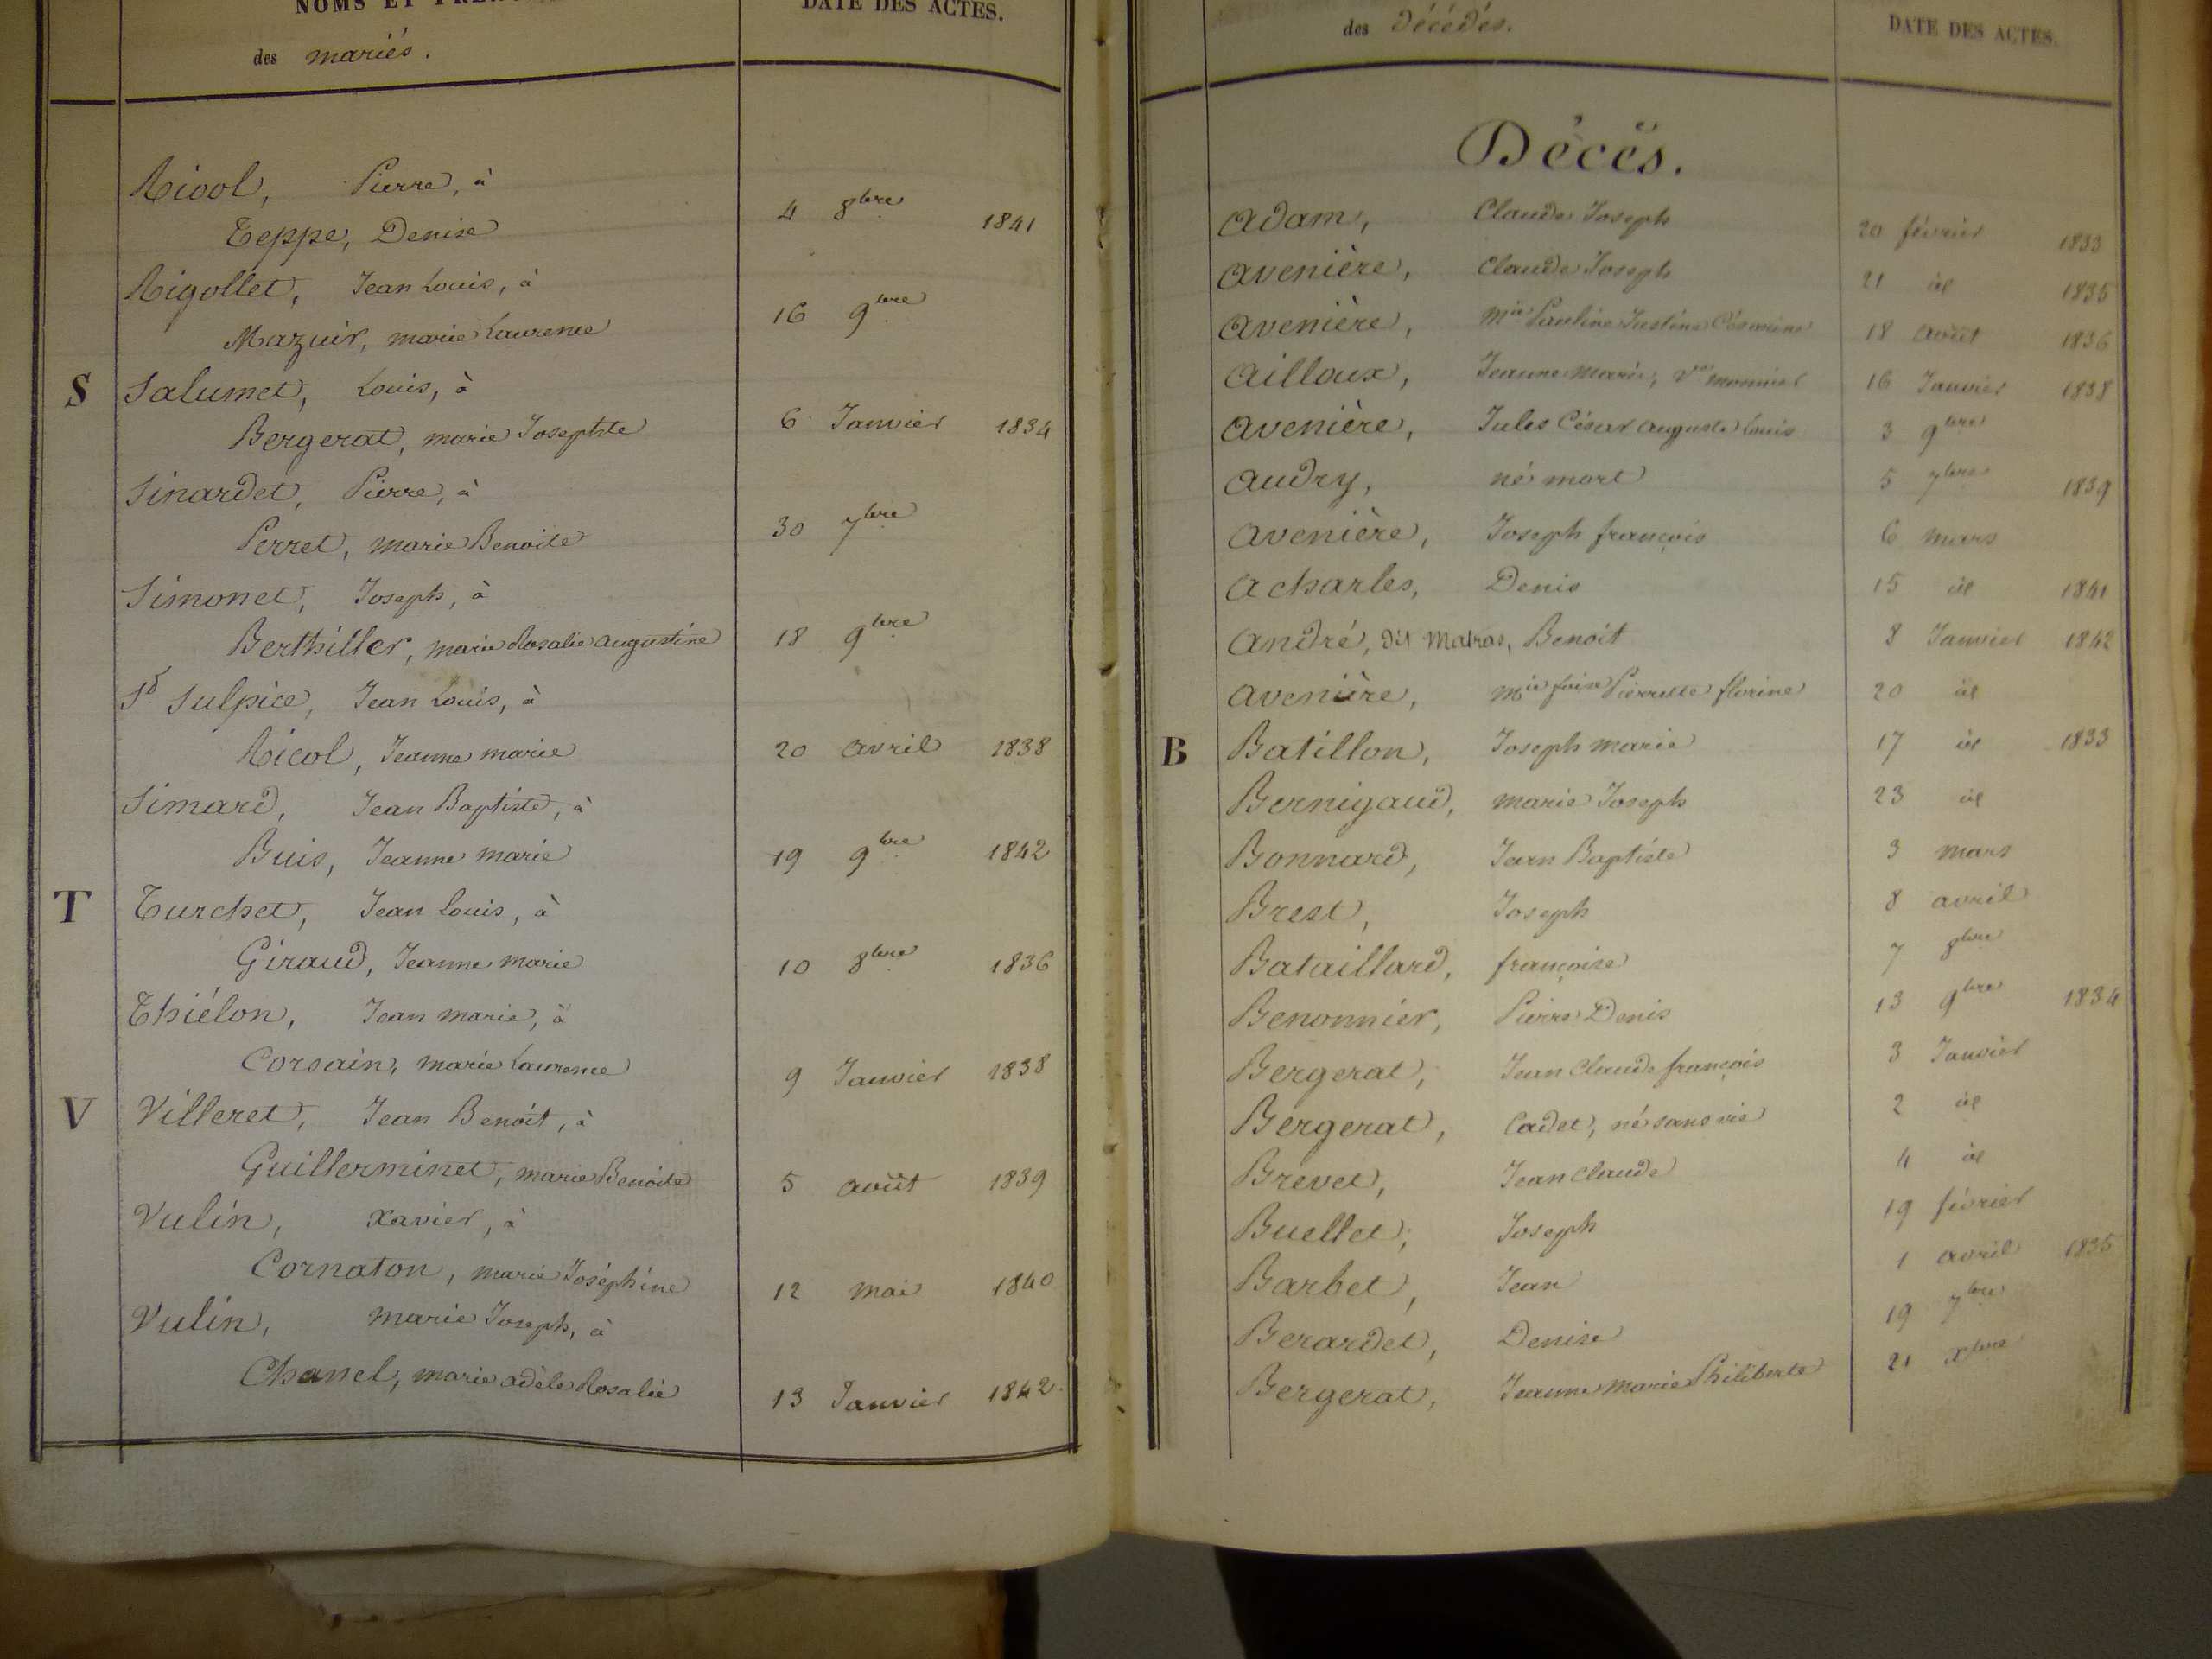 NOMS ET
DATE DES ACTES.
des mariés.
Ricol, Pierre, à
Teppe, Denise 4 8bre 1841
Rigollet, Jean Louis, à
Mazuir, marie Laurence 16 9bre
S Salumet, Louis, à
Bergerat, marie Josephte 6 Janvier 1834
Sinardet, Pierre, à
Perret, marie Benoite 30 7bre
Simonet, Joseph, à
Berthiller, marie Rosalie augustine 18 9bre
St Sulpice, Jean Louis, à
Ricol, Jeanne marie 20 avril 1838
Simard, Jean Baptiste, à
Buis, Jeanne marie 19 9bre 1842
T Turchet, Jean Louis, à
Giraud, Jeanne marie 10 8bre 1836
Thiélon, Jean marie, à
Corsain, marie Laurence 9 Janvier 1838
V Villeret, Jean Benoit, à
Guillerminet, marie Benoite 5 août 1839
Vulin, Xavier, à
Cornaton, marie Joséphine 12 mai 1840
Vulin, marie Joseph, à
Chanel, marie adèle Rosalie 13 Janvier 1842
des Décédés.
DATE DES ACTES.
Décès.
Adam, Claude Joseph 20 février 1833
Avenière, Claude Joseph 21 id 1835
Avenière, Mie Pauline Justine Césarine 18 août 1836
Ailloux, Jeanne Marie, Ve monnier 16 Janvier 1838
Avenière, Jules César auguste Louis 3 9bre
Audry, né mort 5 7bre 1839
Avenière, Joseph françois 6 mars
Acharles, Denis 15 id 1841
André, dit Matras, Benoit 8 Janvier 1842
Avenière, Mie Pierrette florine 20 id
B Batillon, Joseph marie 17 id 1833
Bernigaud, marie Joseph 23 id
Bonnard, Jean Baptiste 3 mars
Brest, Joseph 8 avril
Bataillard, françoise 7 8bre
Benonnier, Pierre Denis 13 9bre 1834
Bergerat, Jean Claude françois 3 Janvier
Bergerat, Cadet, né sans vie 2 id
Brevet, Jean Claude 4 id
Buellet, Joseph 19 février
Barbet, Jean 1 avril 1835
Berardet, Denise 19 7bre
Bergerat, Jeanne marie Philiberte 21 xbre